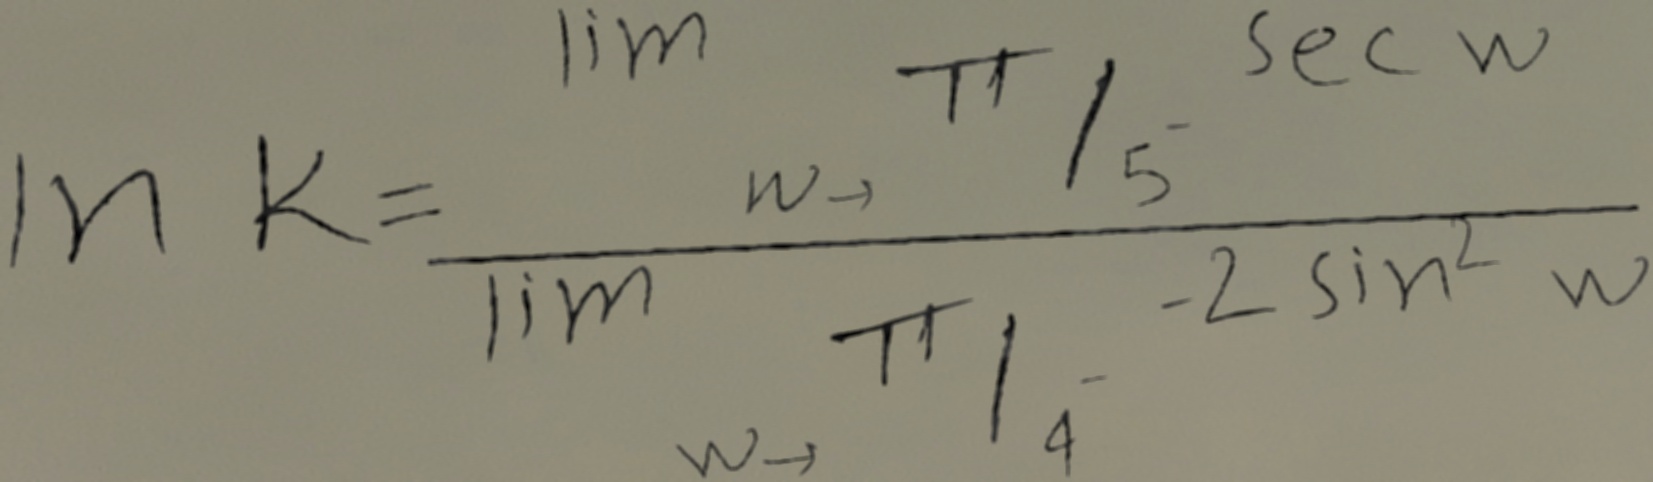 ln K = \frac{\lim_{w \to \pi/5^-} \sec w}{\lim_{w \to \pi/4^-} -2 \sin^2 w}